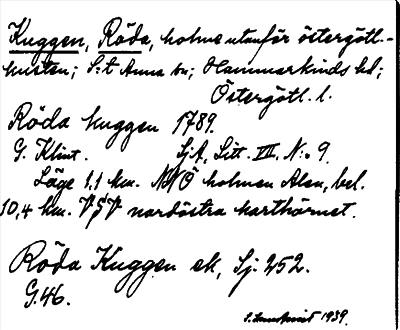 Kuggen, Röda, holme utanför östergötl.-
kusten; S:t Anna sn; Hammarkinds hd;
Östergötl. l.
Röda kuggen 1789.
G. Klint. SjA, Litt. VII. N:o 9.
Läge 1.1 km. NNÖ holmen Alen, bel.
10,4 km. VSV nordöstra karthörnet.
Röda Kuggen ek, Sj. 252.
G. 46.
1939.